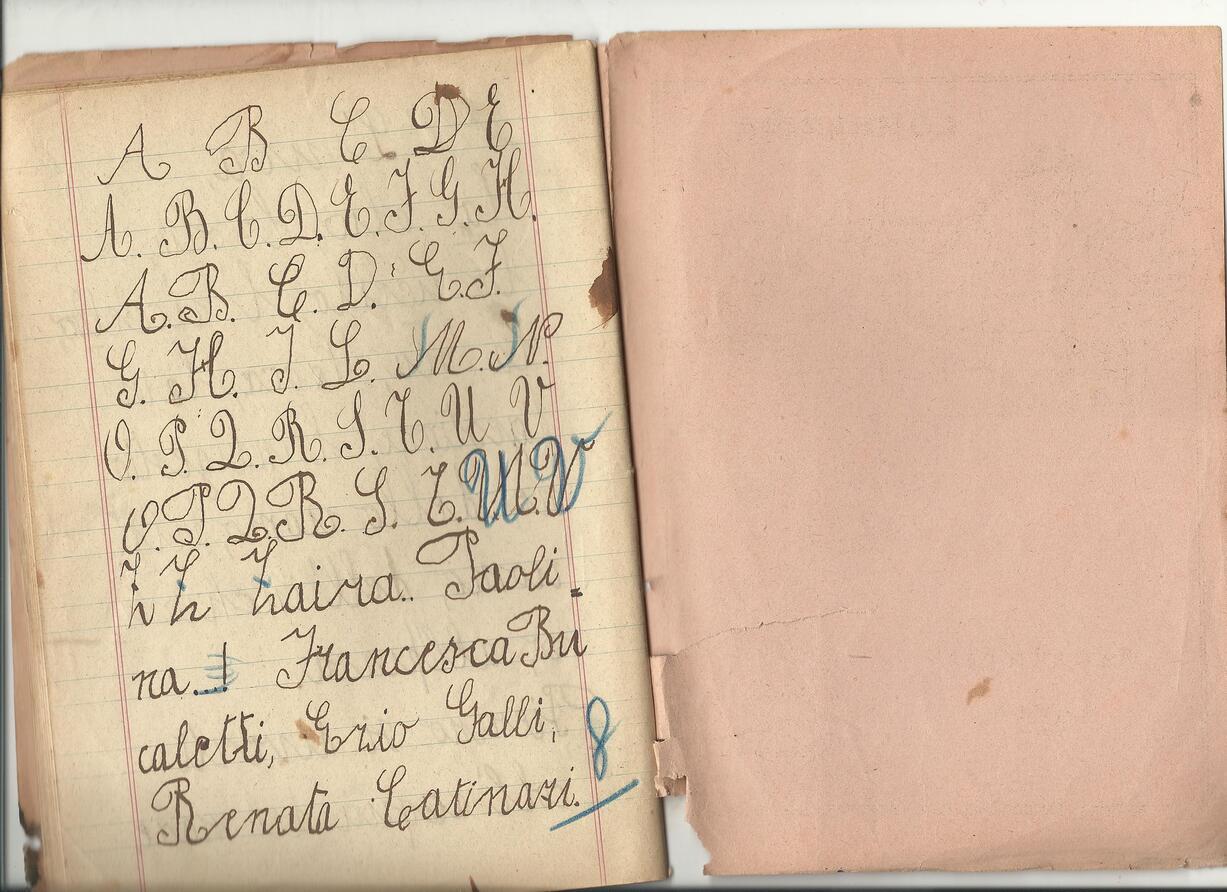 A B C D E
A. B. C. D. E. F. G. H.
A. B. C. D. E. F.
G. H. I. L. M. N.
O. P. Q. R. S. T. U V
O. P. Q. R. S. T. U. V
Z Z Zaira.. Paoli=
na. Francesca Bu
caletti, Ezio Galli,
8
Renata Catinari.